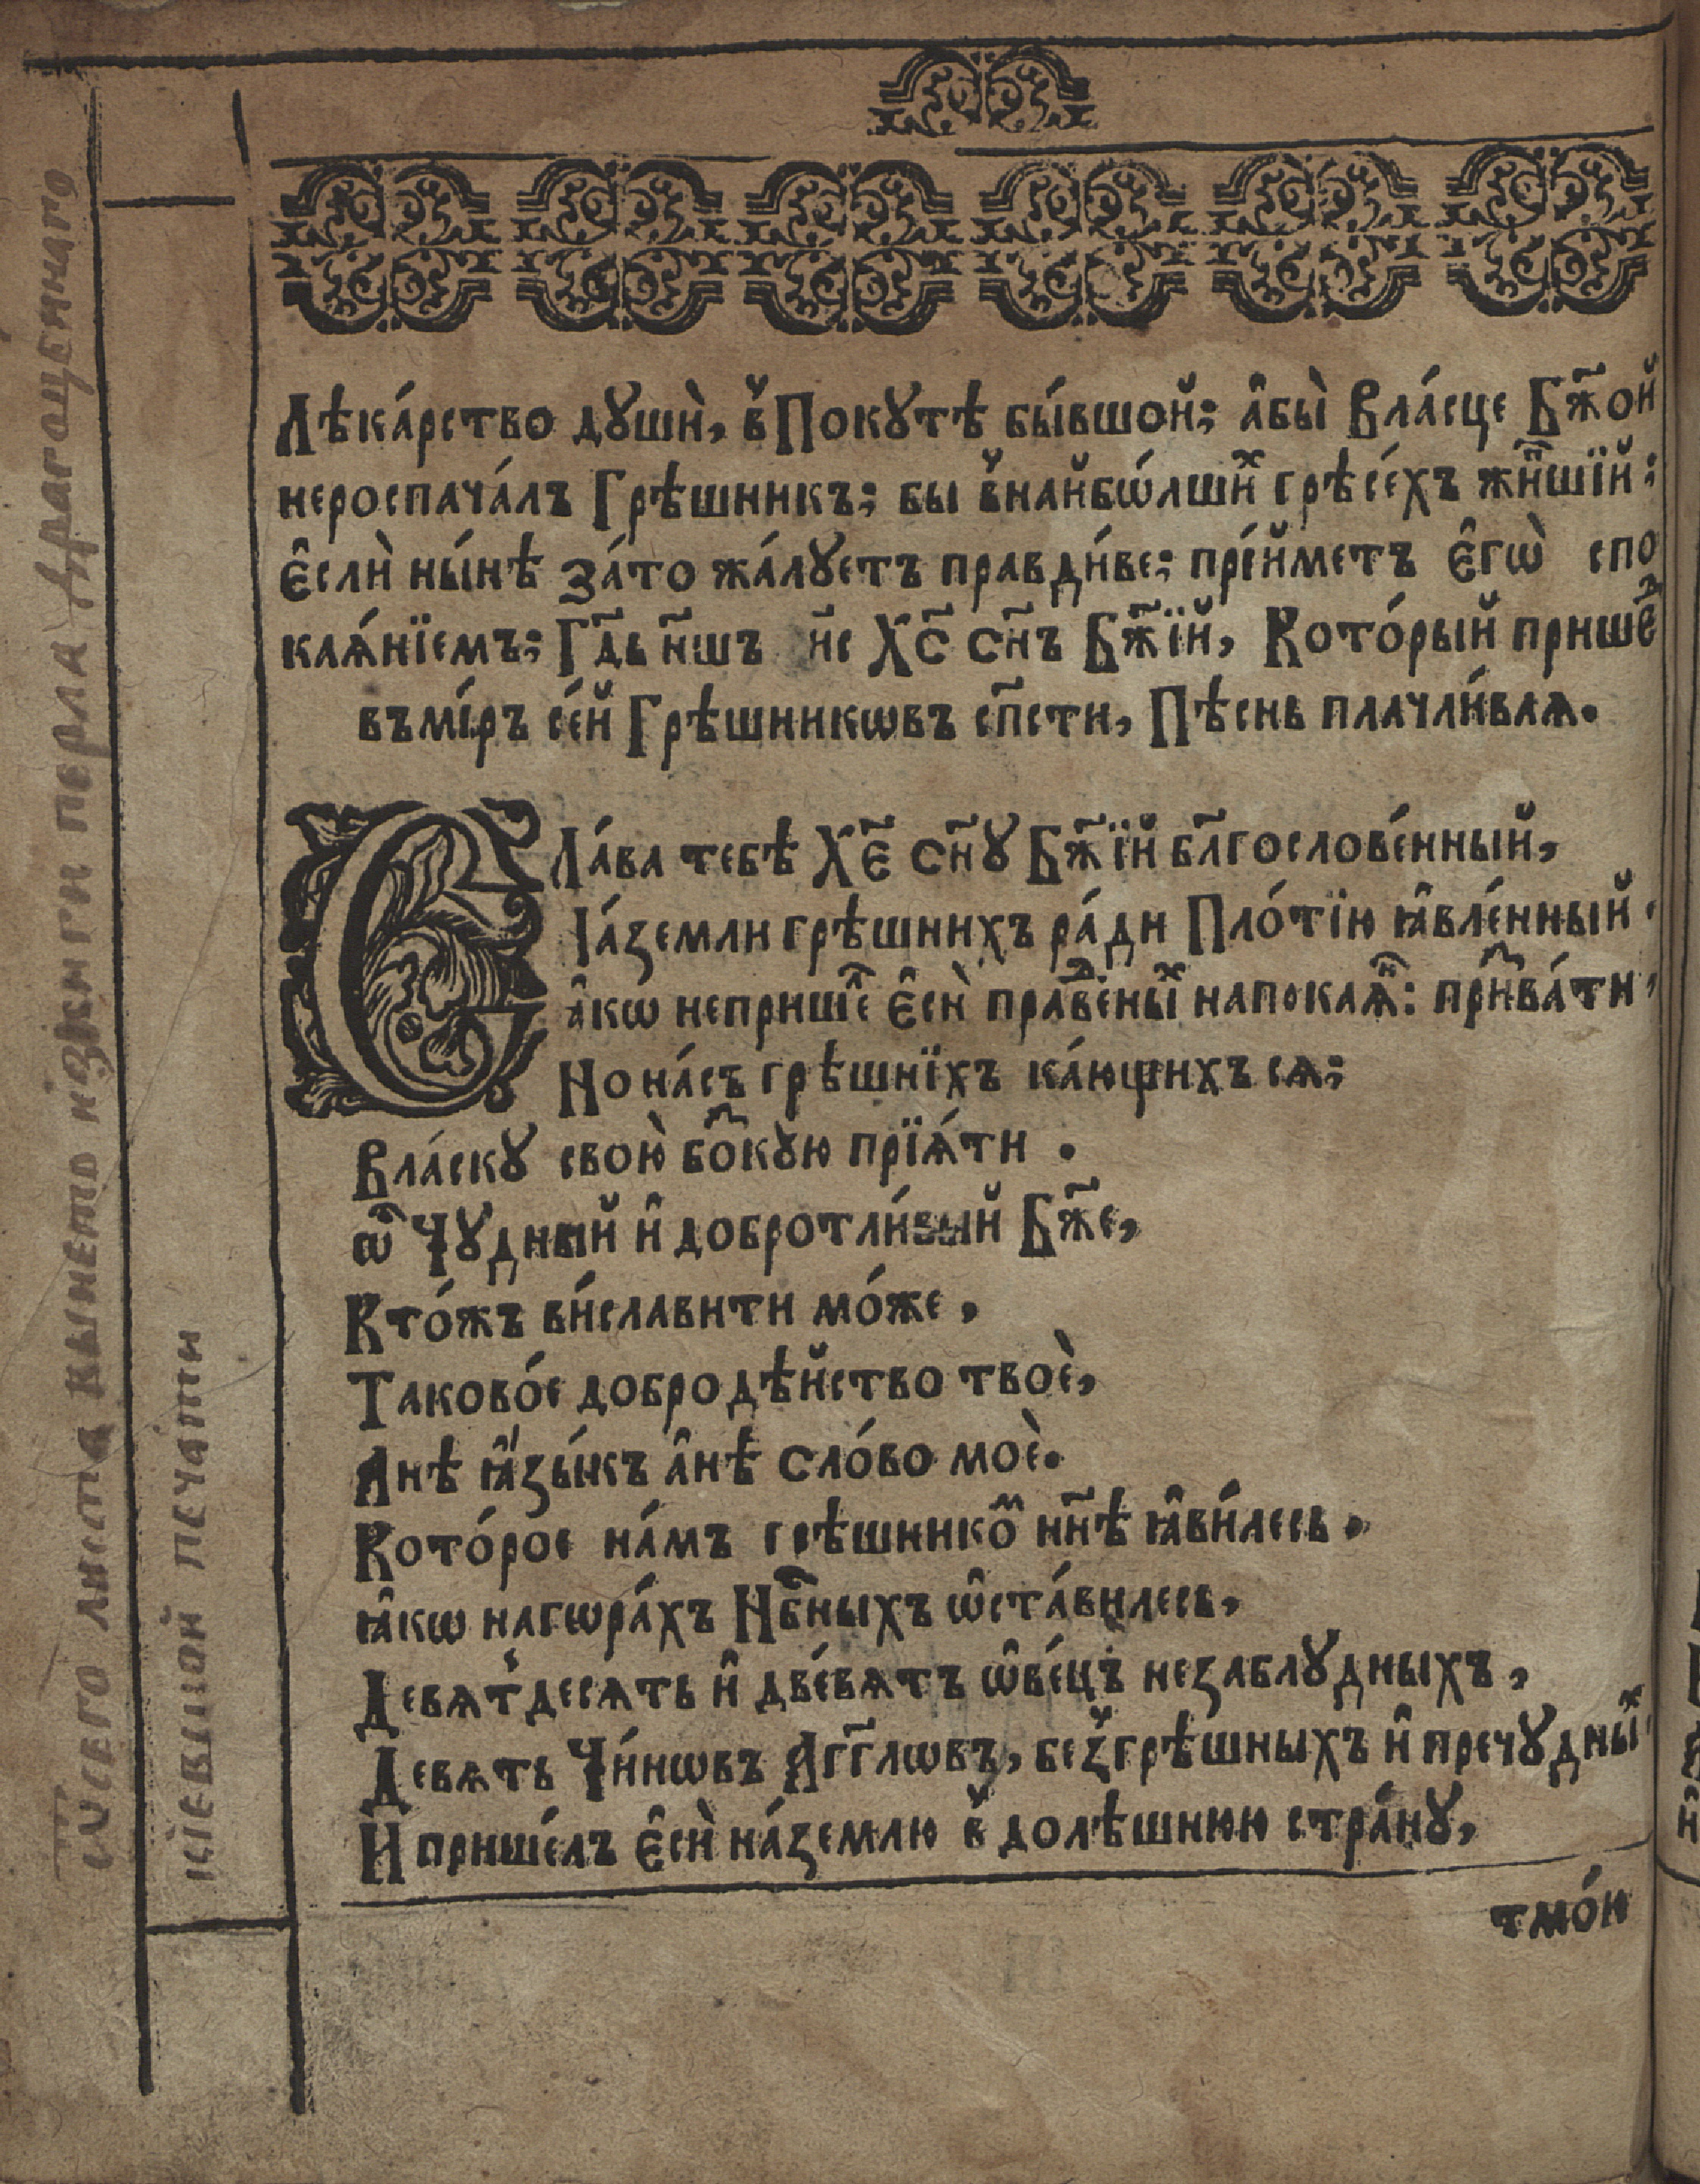 Лѣка́рство душѝ, в̾Покутѣ бы́вшой; а҆бы̀ Вла́сце Бж҃ой
нероспача́лъ Грѣшникъ; бы в̾найбѡ́лшиⷯ грѣсе́хъ жиⷩ҇шїй:
Є҆слѝ ны́нѣ за́то жа́лꙋетъ правди́ве; прі́йметъ є҆гѡ̀ спо
кая́нїемъ; Гдⷭ҇ь н҃шъ і҃с Хс҃ Сн҃ъ Бж҃їй, Кото́рый пришеⷣ
въмі́ръ се́й Грѣшникѡвъ сп҃сти, Пѣснь плачли́вая.
СЛа́ва тебѣ Хе҃ Сн҃ꙋ Бж҃їй бл҃гослове́нный,
На́земли грѣшнихъ ра́ди Пло́тїю ꙗ҆вле́нный.
ꙗ҆кѡ непришеⷧ҇ є҆сѝ праⷡ҇еⷣныⷯ напокаѧⷩ҇: приⷥва́ти,
Но на́съ грѣшнїхъ ка́ющихъ сѧ;
Вла́скꙋ свою̀ боⷤкꙋю прїѧ́ти .
ѡ҆҃ Чꙋдный и҆ добротли́вый Бж҃е,
Кто́жъ ви́славити мо́же,
Таково́е добродѣйство твоѐ,
Анѣ ꙗ҆зы́къ а҆нѣ сло́во моѐ.
Кото́рое на́мъ грѣшникоⷨ нн҃ѣ ꙗ҆ви́лесь.
ꙗ҆кѡ нагѡра́хъ Нбⷭ҇ныхъ ѡ҆ста́вилесь,
Девѧт̾десѧть и҆ две́вѧтъ ѡ҆ве́цъ незаблꙋдныхъ,
Девѧть Чи́нѡвъ Агг҃лѡвъ, без̾грѣшныхъ и҆ пречꙋдныⷯ.
И прише́лъ є҆сѝ на́землю в̾ долѣшнюю стра́нꙋ,
тмо́ю
Ѿсего листа вынето ізкниги перла драгоценнаго
кіевшой печати